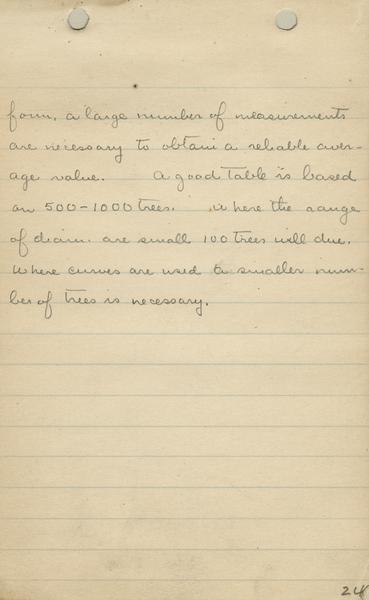 form, a large number of measurements
are necessary to obtain a reliable aver-
age value. A good table is based
on 500-1000 trees. Where the range
of diam. are small 100 trees will due.
Where curves are used a smaller num-
ber of trees is necessary.
24